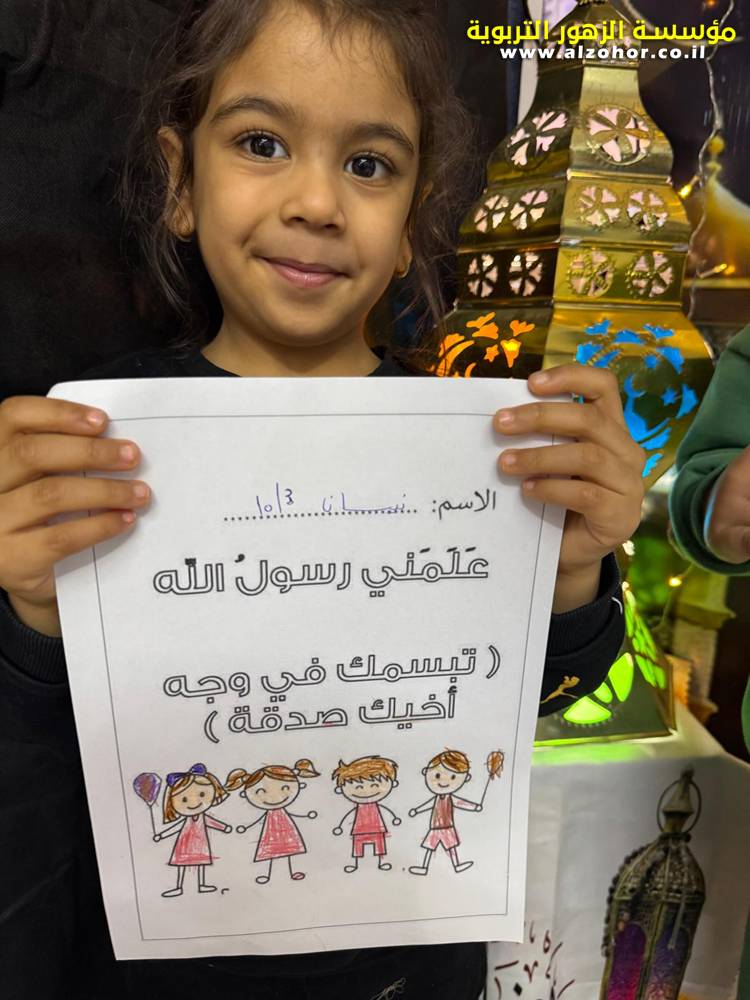 مؤسسة الزهور التربوية
www.alzohor.co.il
الاسم:
عَلَمَني رسولُ الله
( تبسمك في وجه
أخيك صدقة )